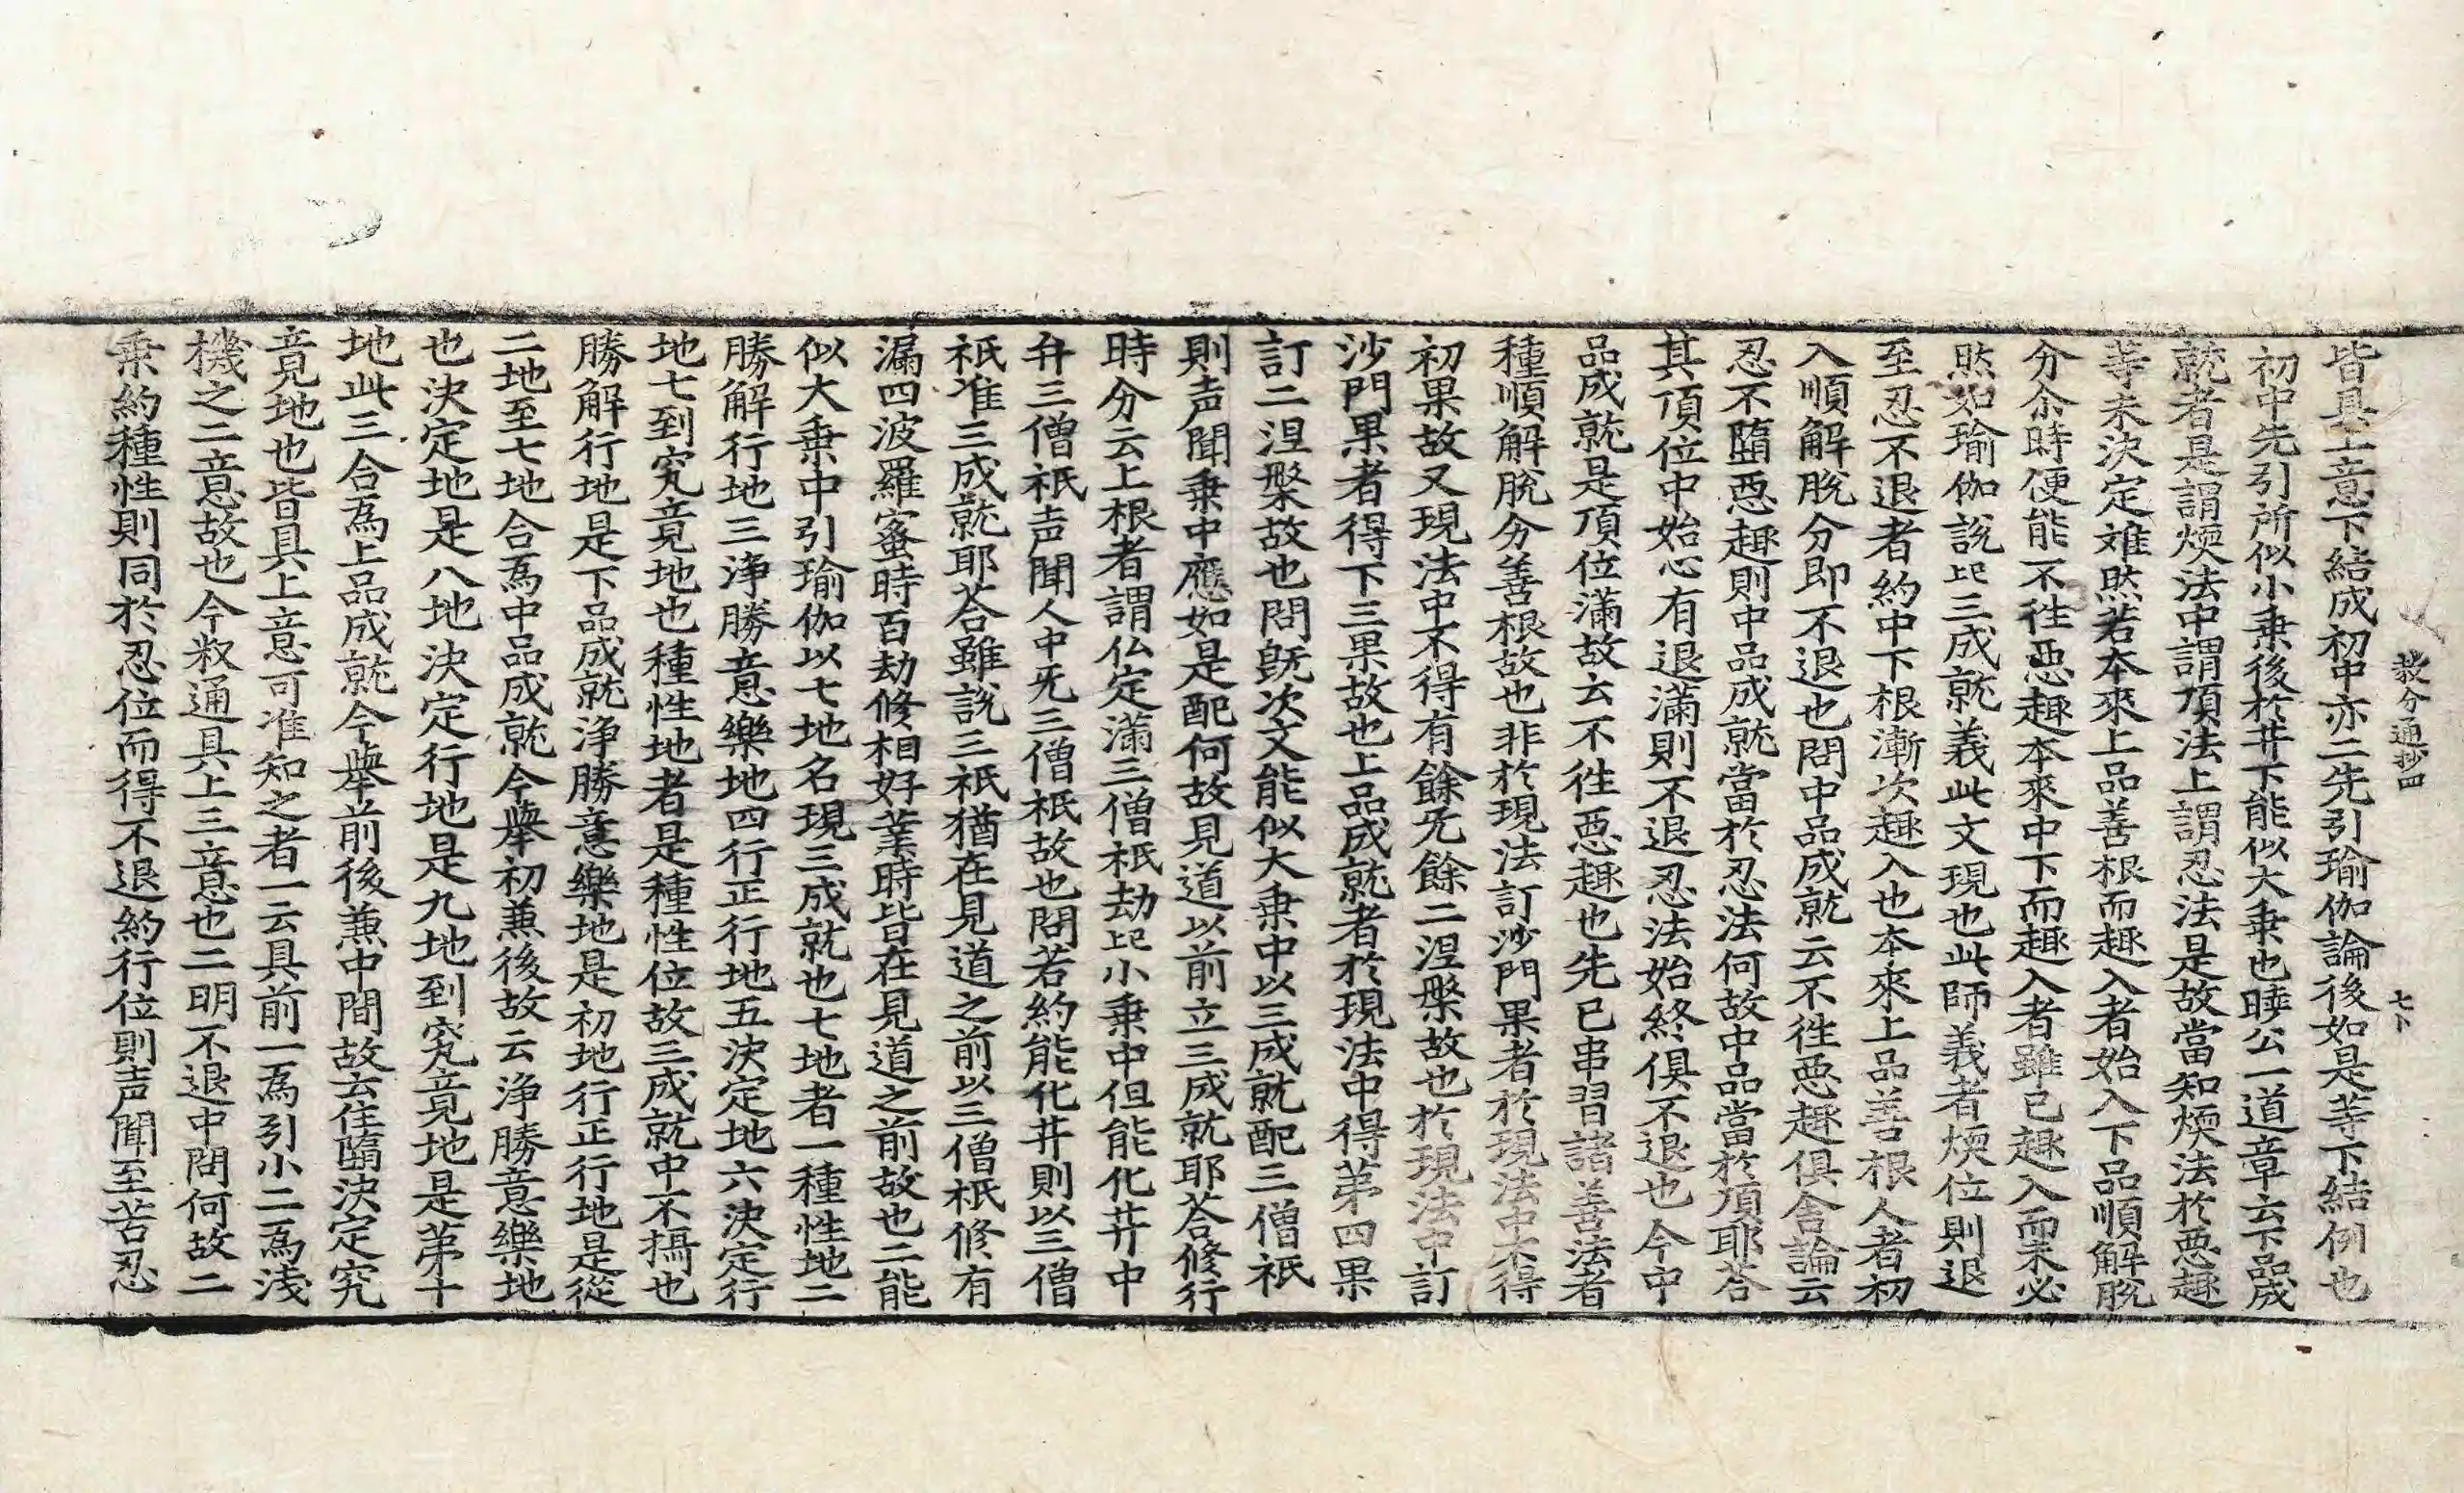 教分通抄四 七卜
皆具上意下結成初中亦二先引瑜伽論後如是等下結例也
初中先引所似小乗後於井下能似大乗也曉公一道章云下品成
就者是謂煗法中謂頂法上謂忍法是故當知煗法於惡趣
等未決定難然若本來上品善根而趣入者始入下品順解脫
分尒時便能不徃惡趣本來中下而趣入者雖已趣入而未必
然如瑜伽說上巳三成就義此文現也此師義者煗位則退
至忍不退者約中下根漸次趣入也本來上品善根人者初
入順解脫分即不退也問中品成就云不徃惡趣俱舍論云
忍不墮惡趣則中品成就當於忍法何故中品當於頂耶荅
其頂位中始心有退滿則不退忍法始終俱不退也今中
品成就是頂位滿故云不徃惡趣也先已串習諸善法者
種順解脫分善根故也非於現法訂沙門果者於現法中未得
初果故又現法中不得有餘旡餘二涅槃故也於現法中訂
沙門果者得下三果故也上品成就者於現法中得苐四果
訂二涅槃故也問旣次文能似大乗中以三成就配三僧祇
則声聞乗中應如是配何故見道以前立三成就耶荅修行
時分云上根者謂仏定滿三僧祇劫上巳小乗中但能化井中
弁三僧祇声聞人中旡三僧祇故也問若約能化井則以三僧
祇准三成就耶荅雖說三祇猶在見道之前以三僧祇修有
漏四波羅蜜時百劫修相好業時皆在見道之前故也二能
似大乗中引瑜伽以七地名現三成就也七地者一種性地二
勝解行地三淨勝意樂地四行正行地五決定地六決定行
地七到究竟地也種性地者是種性位故三成就中不攝也
勝解行地是下品成就淨勝意樂地是初地行正行地是從
二地至七地合爲中品成就今擧初兼後故云淨勝意樂地
也決定地是八地決定行地是九地到究竟地是苐十
地此三合爲上品成就今擧前後兼中間故云住墮決定究
竟見地也皆具上意可准知之者一云具前一爲引小二爲淺
機之二意故也今叙通具上三意也二明不退中問何故二
乗約種性則同於忍位而得不退約行位則声聞至苦忍